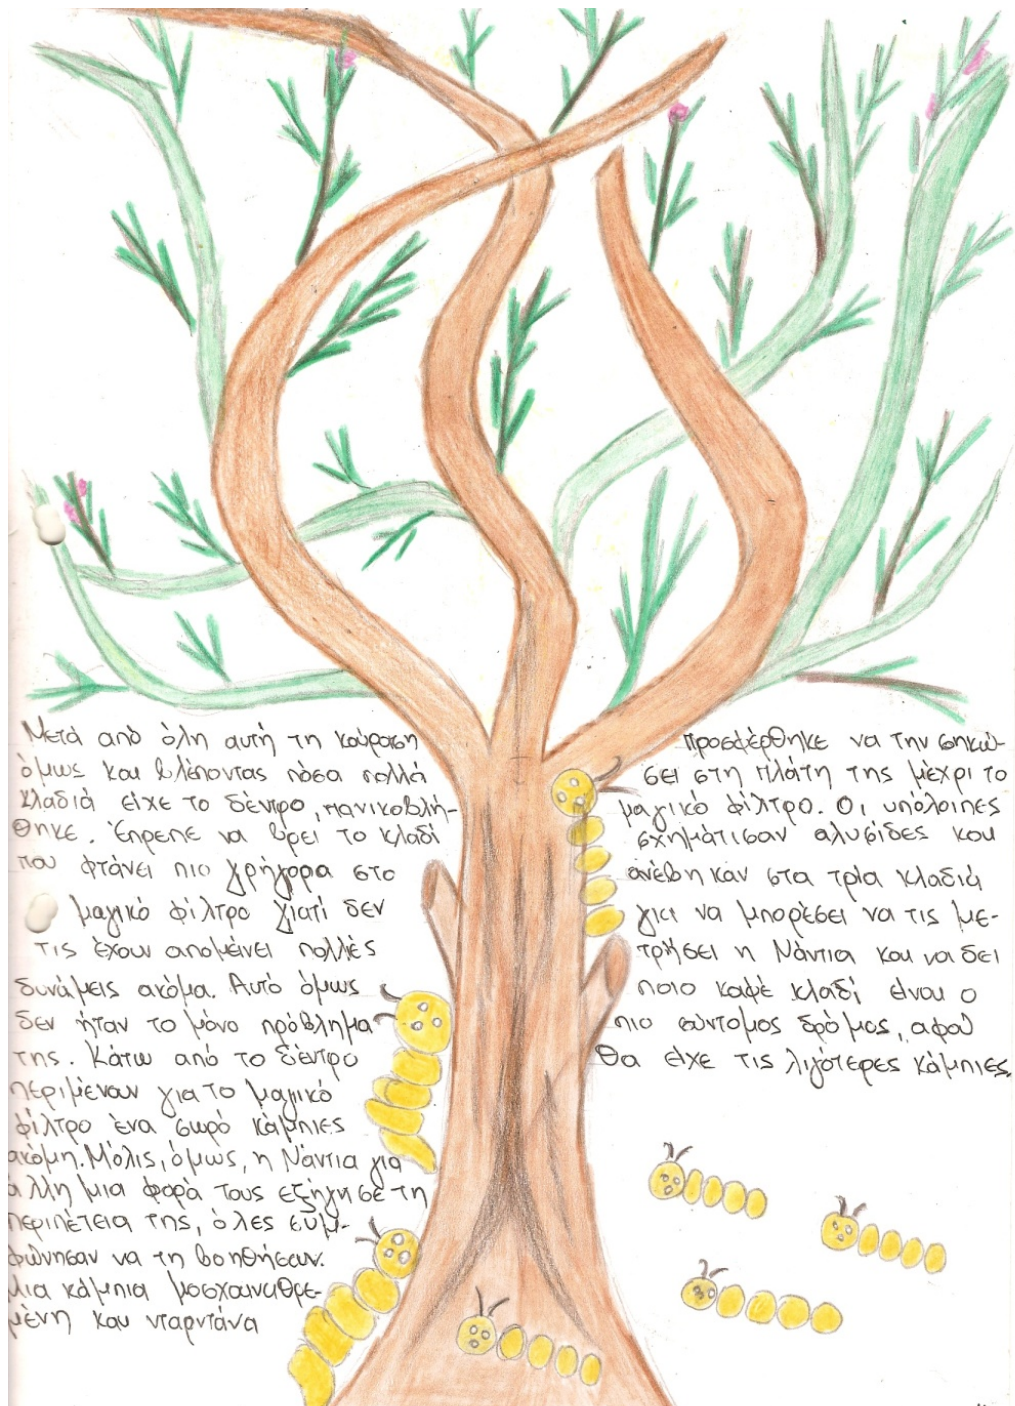 Μετά από όλη αυτή τη κούραση
όμως και βλέποντας πόσα πολλά
κλαδιά είχε το δέντρο, πανικοβλή-
θηκε. Έπρεπε να βρει το κλαδί
που φτάνει πιο γρήγορα στο
μαγικό φίλτρο γιατί δεν
τις έχουν απομένει πολλές
δυνάμεις ακόμα. Αυτό όμως
δεν ήταν το μόνο πρόβλημα
της. Κάτω από το δέντρο
περιμέναν για το μαγικό
φίλτρο ένα σωρό κάμπιες
ακόμη. Μόλις, όμως, η Νάντια για
άλλη μια φορά τους εξήγησε τη
περιπέτεια της, όλες συμ-
φώνησαν να τη βοηθήσουν.
Μια κάμπια μοσχαναθρε-
μένη και νταρντάνα
προσφέρθηκε να την σηκώ-
σει στη πλάτη της μέχρι το
μαγικό φίλτρο. Οι υπόλοιπες
σχημάτισαν αλυσίδες και
ανέβηκαν στα τρία κλαδιά
για να μπορέσει να τις με-
τρήσει η Νάντια και να δει
ποιο καφέ κλαδί είναι ο
πιο σύντομος δρόμος, αφού
θα είχε τις λιγότερες κάμπιες.